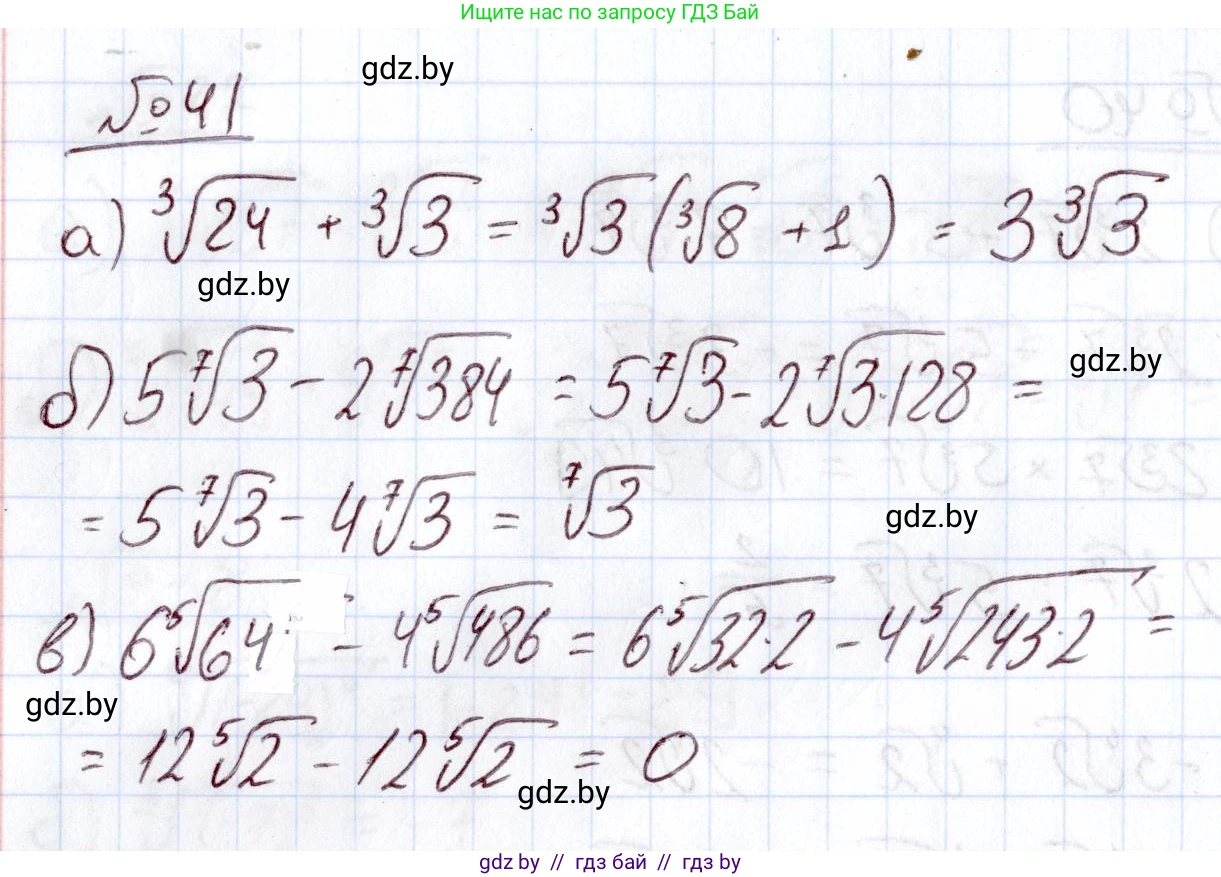 Ищите нас по запросу ГДЗ Бай
gdz.by
№ 41
а) ∛24 + ∛3 = ∛3 (∛8 + 1) = 3 ∛3
gdz.by
gdz.by
б) 5 ⁷√3 - 2 ⁷√384 = 5 ⁷√3 - 2 ⁷√3·128 =
= 5 ⁷√3 - 4 ⁷√3 = ⁷√3
gdz.by
в) 6 ⁵√64 - 4 ⁵√486 = 6 ⁵√32·2 - 4 ⁵√243·2 =
gdz.by
= 12 ⁵√2 - 12 ⁵√2 = 0
gdz.by
gdz.by // гдз бай // гдз by